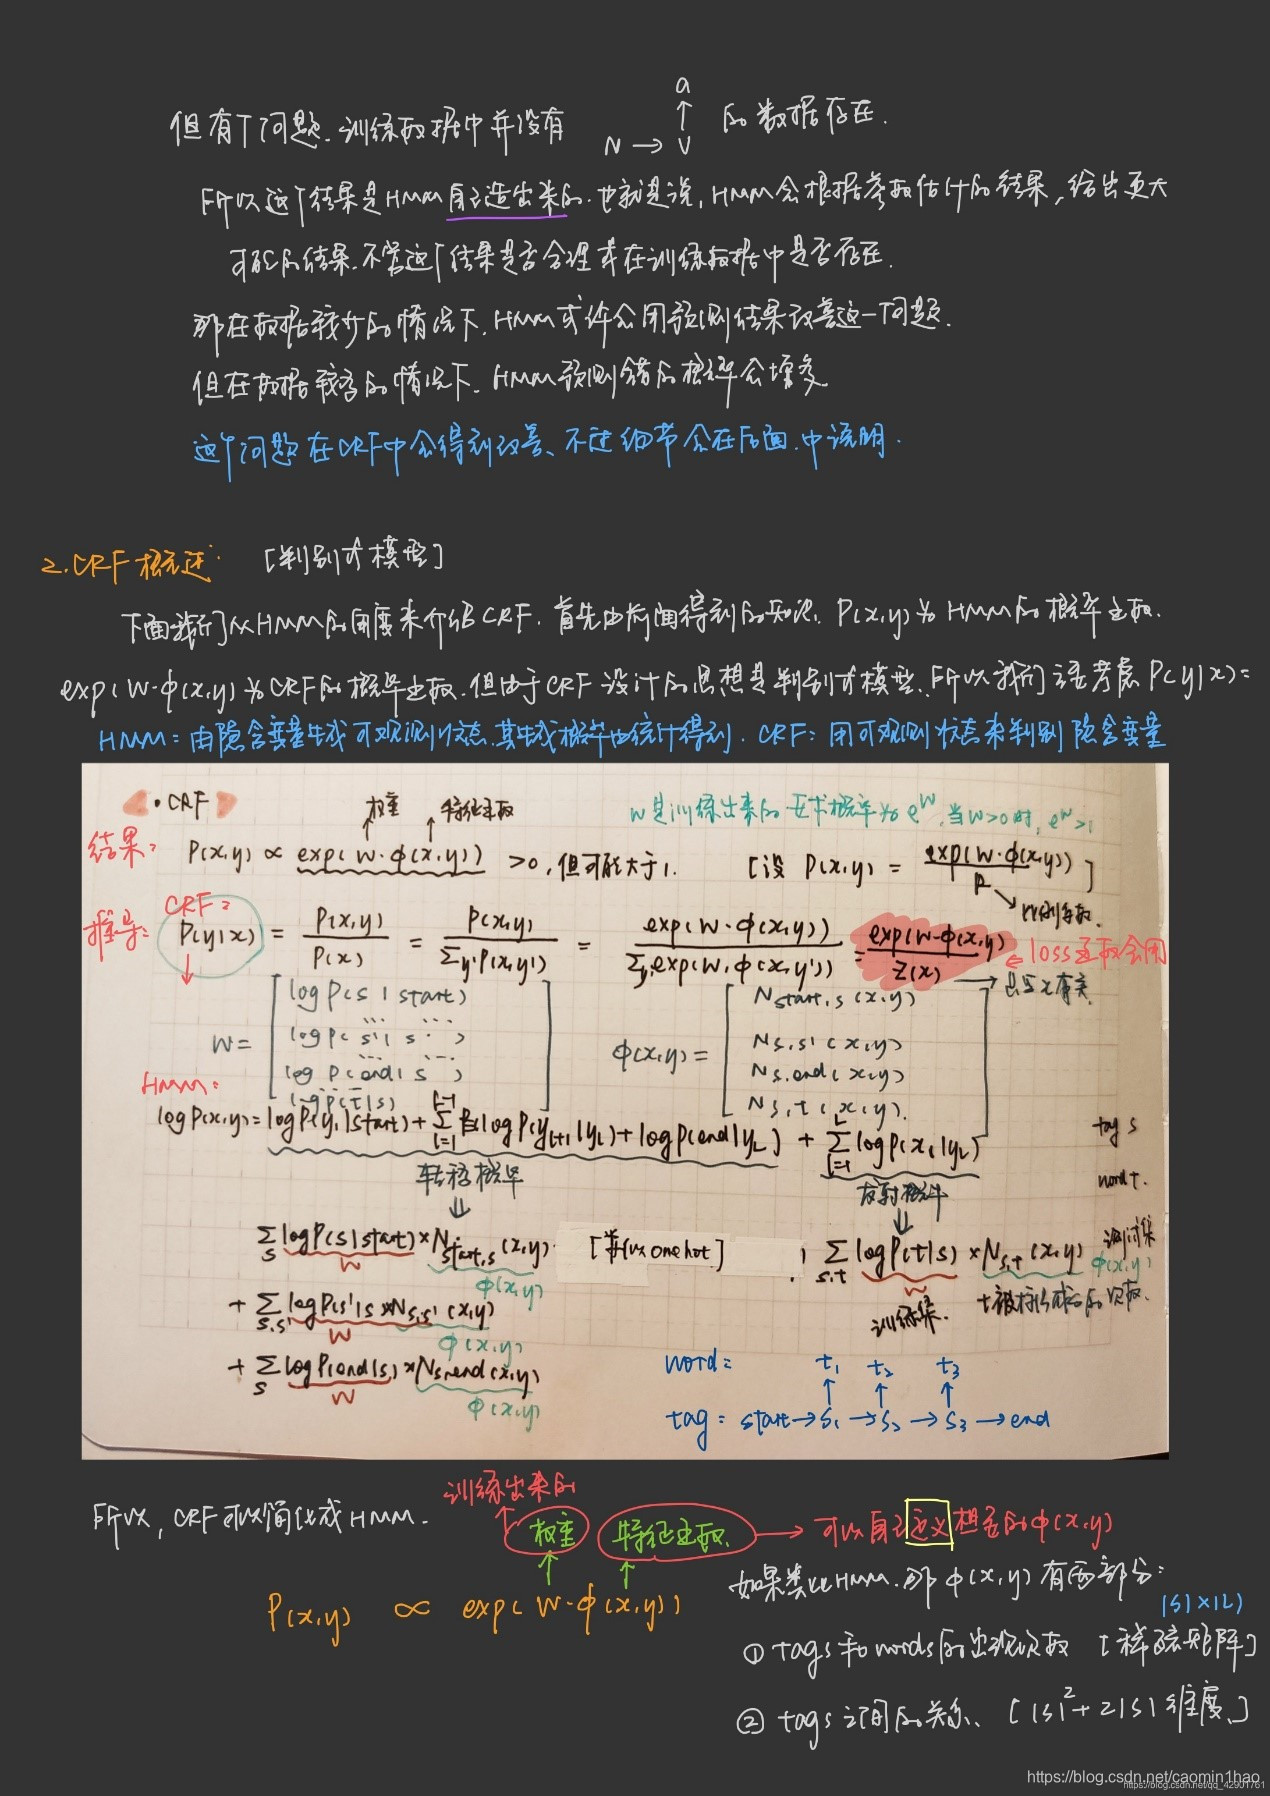 a
↑
但有个问题.训练数据中并没有 N → V 的数据存在.
所以这个结果是HMM自己造出来的.也就是说,HMM会根据参数估计的结果,给出更大
可能的结果.不管这个结果是否合理或在训练数据中是否存在.
那在数据较少的情况下.HMM或许会用预测结果改善这一问题.
但在数据较多的情况下.HMM预测错的概率会增多.
这个问题在CRF中会得到改善、不过细节会在后面.中说明.
2.CRF概述: [判别式模型]
下面我们从HMM的角度来介绍CRF.首先由前面得到的知识. P(x,y)为HMM的概率函数.
exp(W·φ(x,y)为CRF的概率函数.但由于CRF设计的思想是判别式模型.所以我们主要考虑P(y|x)=
HMM:由隐含变量生成可观测状态.其生成概率由统计得到. CRF:用可观测状态来判别隐含变量
·CRF 权重 特征函数 W是训练出来的 要求概率为e^W,当W>0时, e^W>1
结果: P(x,y) ∝ exp(W·φ(x,y)) >0,但可能大于1. [设 P(x,y) = exp(W·φ(x,y)) / R ]
比例参数.
CRF:
推导: P(y|x) = P(x,y) / P(x) = P(x,y) / Σy' P(x,y') = exp(W·φ(x,y)) / Σy' exp(W·φ(x,y')) = exp(W·φ(x,y) / Z(x) ← loss函数会用
→ 只与x有关.
W = [ log P(s|start)
... ...
log P(s'|s)
... ...
log P(end|s)
... ...
log P(t|s) ]
φ(x,y) = [ N start,s (x,y)
N s,s' (x,y)
N s,end (x,y)
N s,t (x,y). ]
HMM:
log P(x,y) = log P(y₁|start) + Σ l=1 L-1 log P(y l+1|y l) + log P(end|y L) + Σ l=1 L log P(x l|y l)
转移概率 发射概率
tag s
word t.
Σs log P(s|start) × N start,s (x,y) [类似one hot] Σs,t log P(t|s) × N s,t (x,y) 测试集
W φ(x,y) W φ(x,y)
训练集. t被标作s的次数.
+ Σs,s' log P(s'|s × N s,s' (x,y)
W φ(x,y)
+ Σs log P(end|s) × N s,end (x,y)
W φ(x,y)
word: t₁ t₂ t₃
↑ ↑ ↑
tag: start → S₁ → S₂ → S₃ → end
训练出来的
所以,CRF可以简化成HMM.
权重 特征函数. → 可以自己定义想要的φ(x,y)
P(x,y) ∝ exp(W·φ(x,y))
如果类比HMM.那φ(x,y)有两部分:
|S|×|L|
① tags和words的出现次数 [稀疏矩阵]
② tags之间的关系、[|S|²+2|S|维度.]
https://blog.csdn.net/caomin1hao
https://blog.csdn.net/qq_42901761